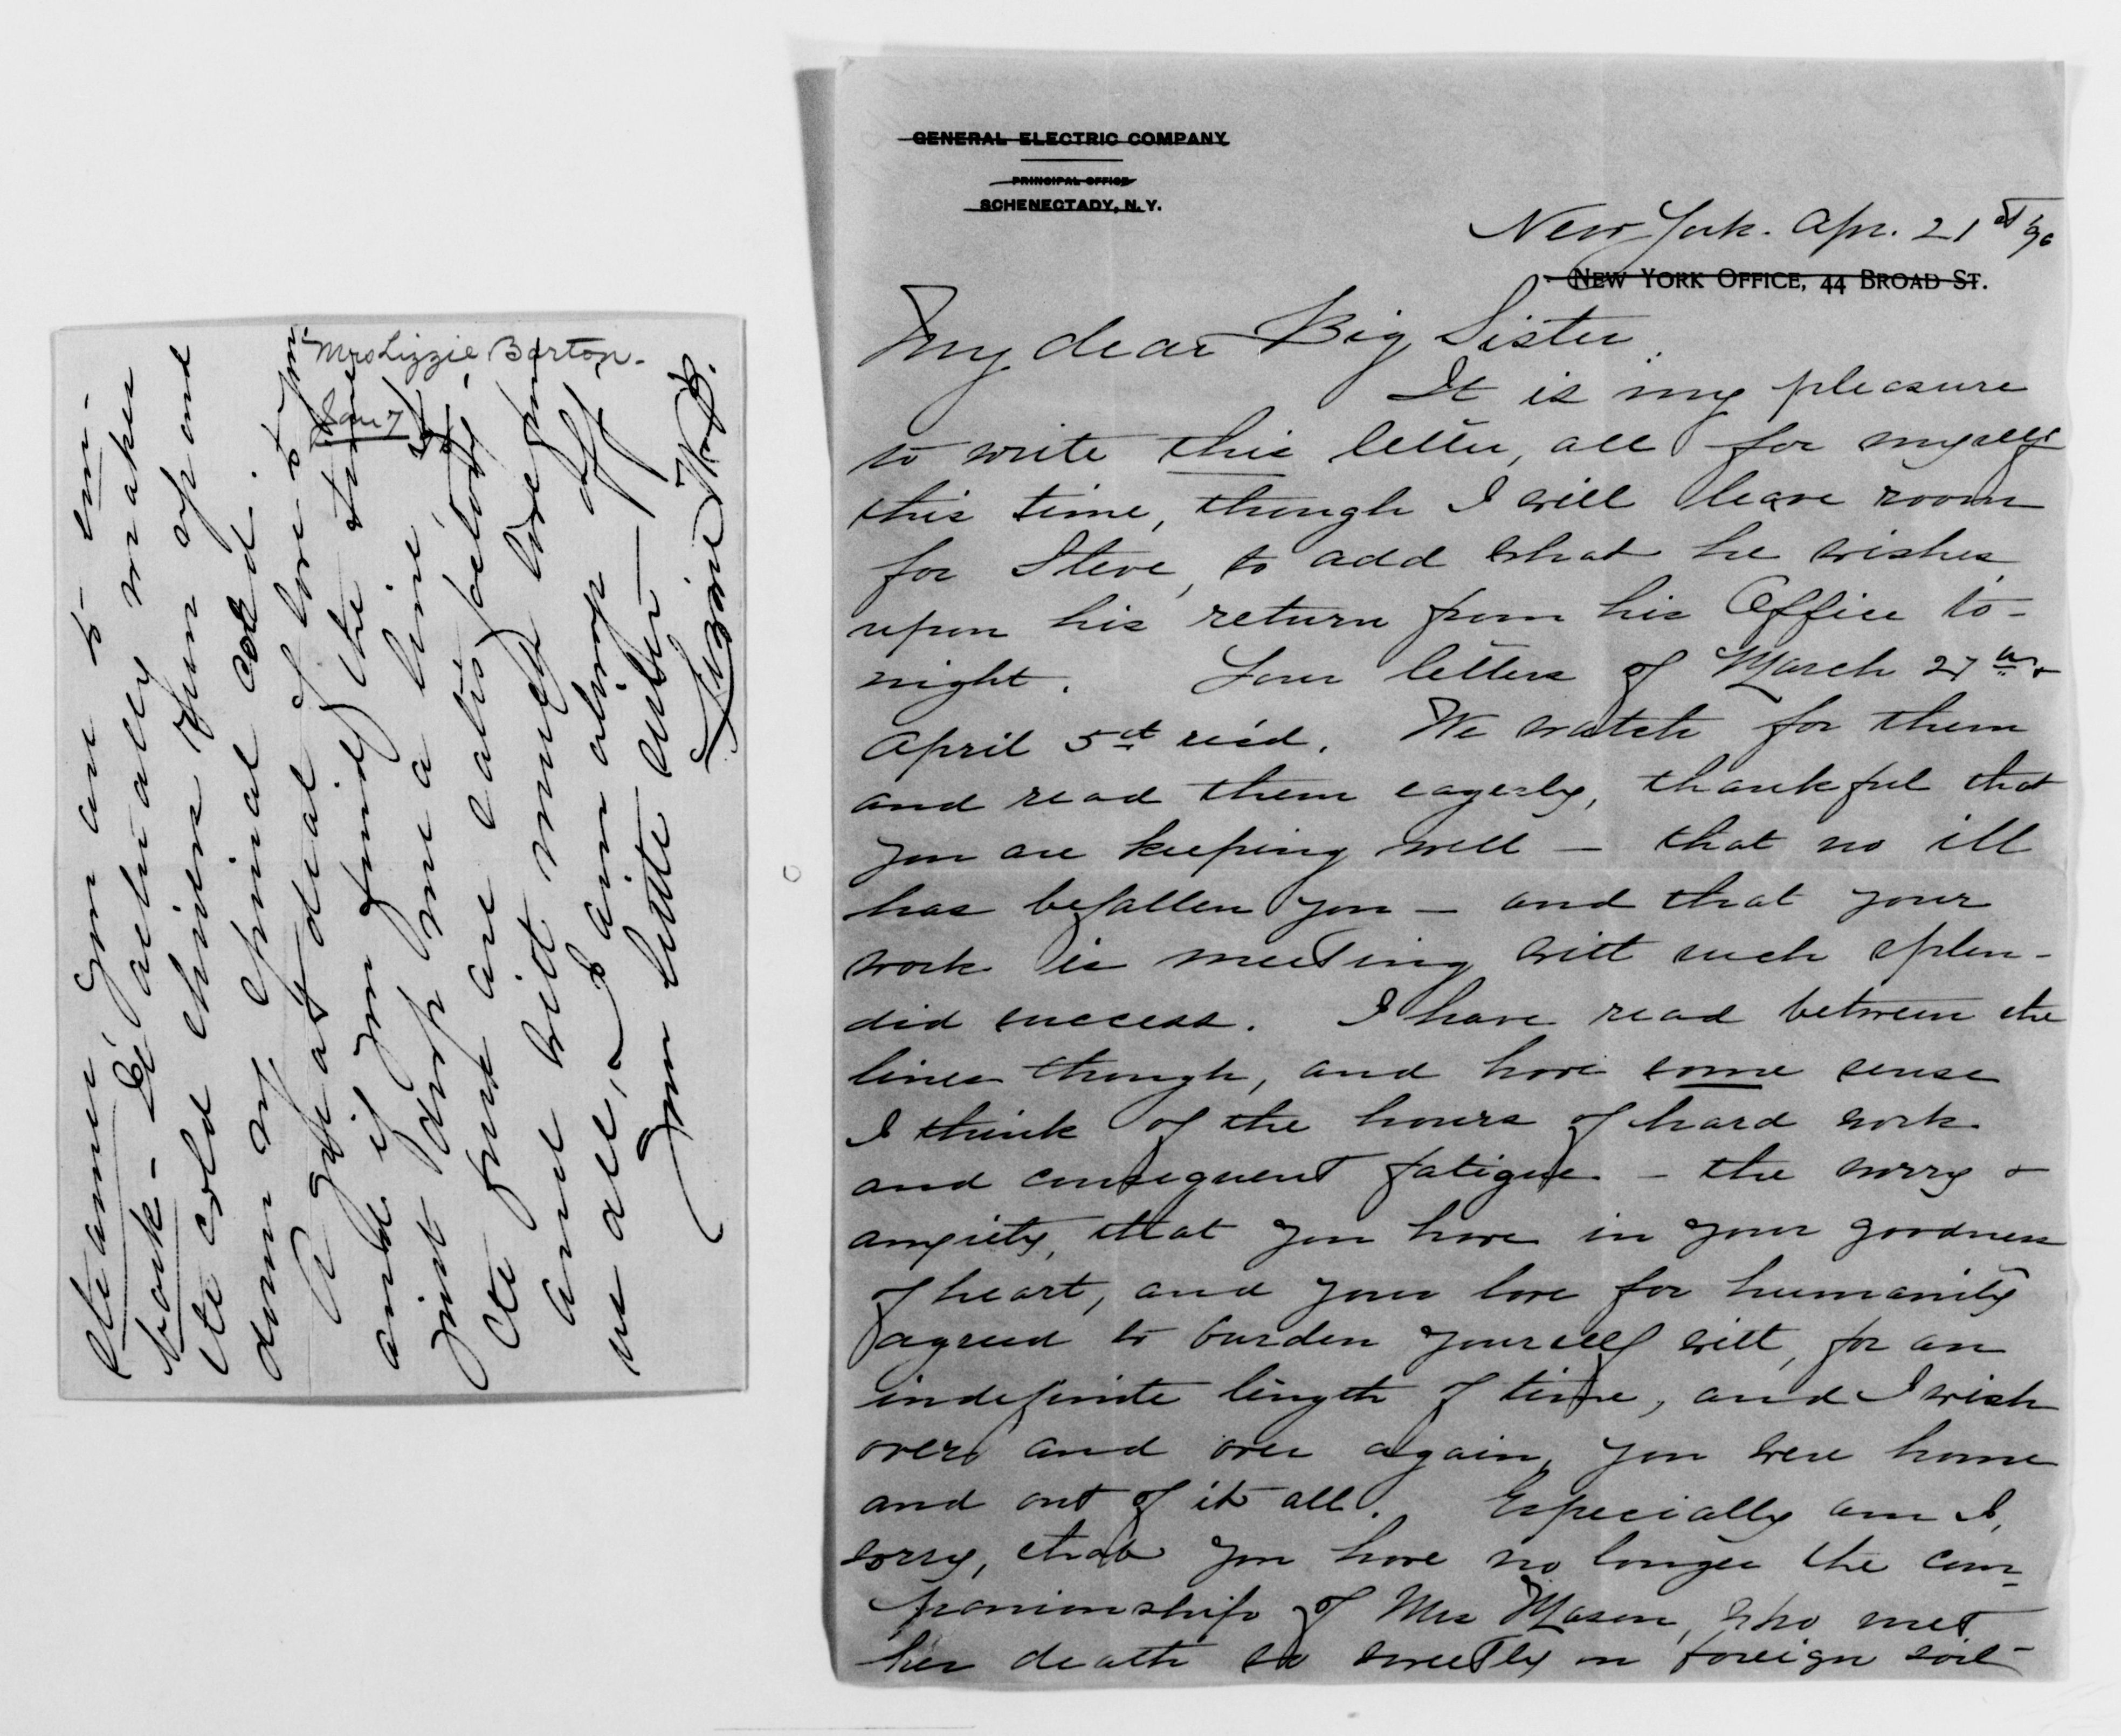 steamer you are to em-
bark - It actually makes
the cold chivers run up and
down my spinal cord.
A great deal of love to you
and if you find the time
just drop me a line, if
the pens are satisfactory.
and with much love from
us all, I am always aff.
Your little sister
Lizzie W. B.
Mrs Lizzie Barton.
Jan 7
GENERAL ELECTRIC COMPANY
PRINCIPAL OFFICE
SCHENECTADY, N.Y.
New York. Apr. 21st /96
NEW YORK OFFICE, 44 BROAD ST.
My dear Big Sister.
It is my pleasure
to write this letter, all for myself
this time, though I will leave room
for Steve, to add what he wishes
upon his return from his Office to-
night. Your letters of March 27th &
April 5th rec'd. We watch for them
and read them eagerly, thankful that
you are keeping well — that no ill
has befallen you — and that your
work is meeting with such splen-
did success. I have read between the
lines though, and have some sense
I think of the hours of hard work
and consequent fatigue - the worry &
anxiety, that you have in your goodness
of heart, and your love for humanity
agreed to burden yourself with, for an
indefinite length of time, and I wish
over and over again, you were home
and out of it all. Especially am I,
sorry, that you have no longer the com-
panionship of Mrs Mason, who met
her death so sweetly on foreign soil -